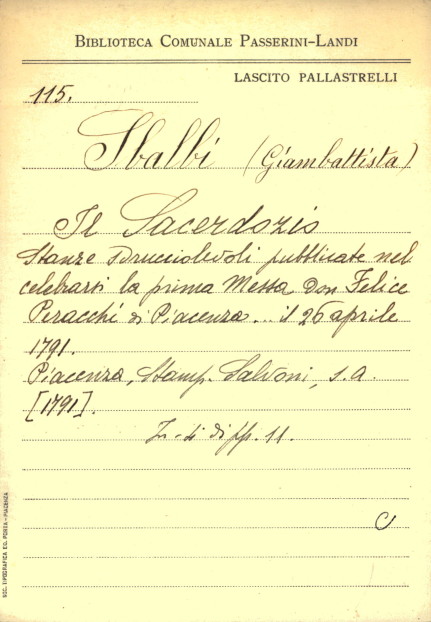 BIBLIOTECA COMUNALE PASSERINI-LANDI
LASCITO PALLASTRELLI
115.
Sbalbi (Giambattista)
Il Sacerdozio
Stanze sdrucciolevoli pubblicate nel
celebrarsi la prima Messa Don Felice
Peracchi di Piacenza... il 26 aprile
1791.
Piacenza, Stamp. Salvoni, s.a.
[1791].
In-4 di pp. 11.
C
SOC. TIPOGRAFICA ED. PORTA - PIACENZA